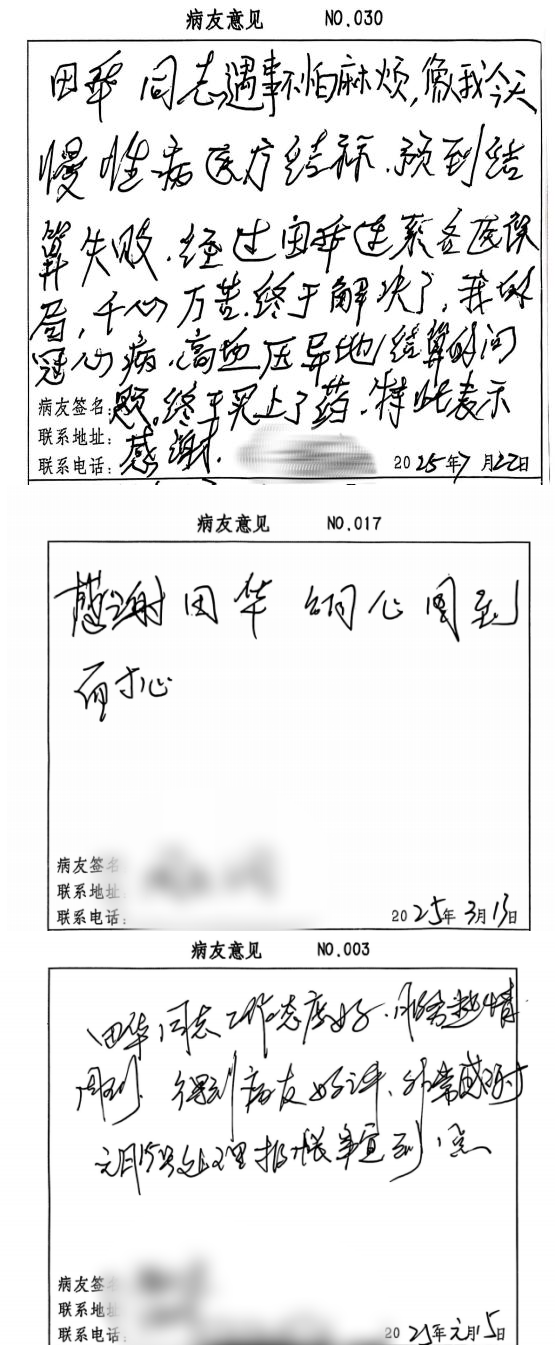 病友意见 NO.030
田华同志遇事不怕麻烦,像我今天
慢性病医疗结
到结
算失败.经过田华连系各医保
局,千心万苦.终于解决了,我的
冠心病.高血压异地结算的问
题。终于买上了药.特此表示
感谢.
病友签名:
联系地址:
联系电话:
2025年7月22日
病友意见 NO.017
感谢田华 同心周到
耐心
病友签名
联系地址
联系电话:
2025年3月13日
病友意见 NO.003
田华同志工作态度好.服务热情
周到.得到病友好评.非常感谢
元月15号处理报帐事宜到
病友签
联系地
联系电话
2025年元月15日